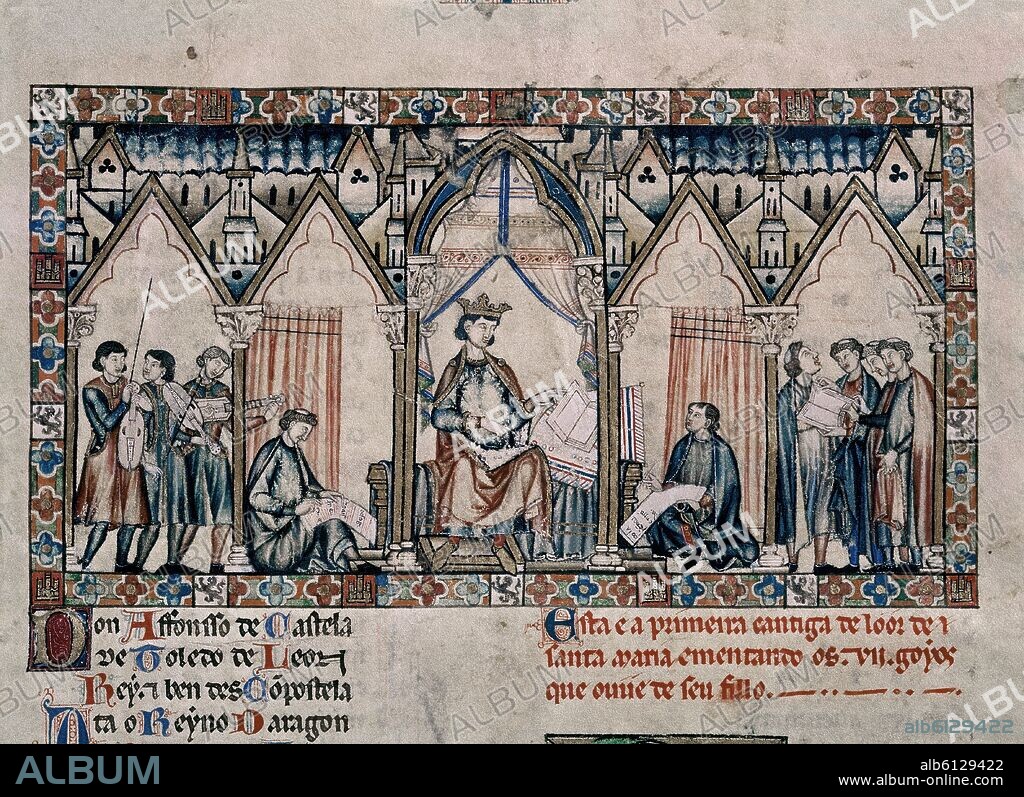 Don Affonsso de Castela
De Toledo de Leon
Rey ⁊ ben des Cõpostela
Ata o Reyno Daragon
Esta e a primeira cantiga de loor de
santa maria ementando os. vii. goyos
que ouue de seu fillo.
ALBUM
alb6129422
ALBUM
alb6129422
www.album-online.com